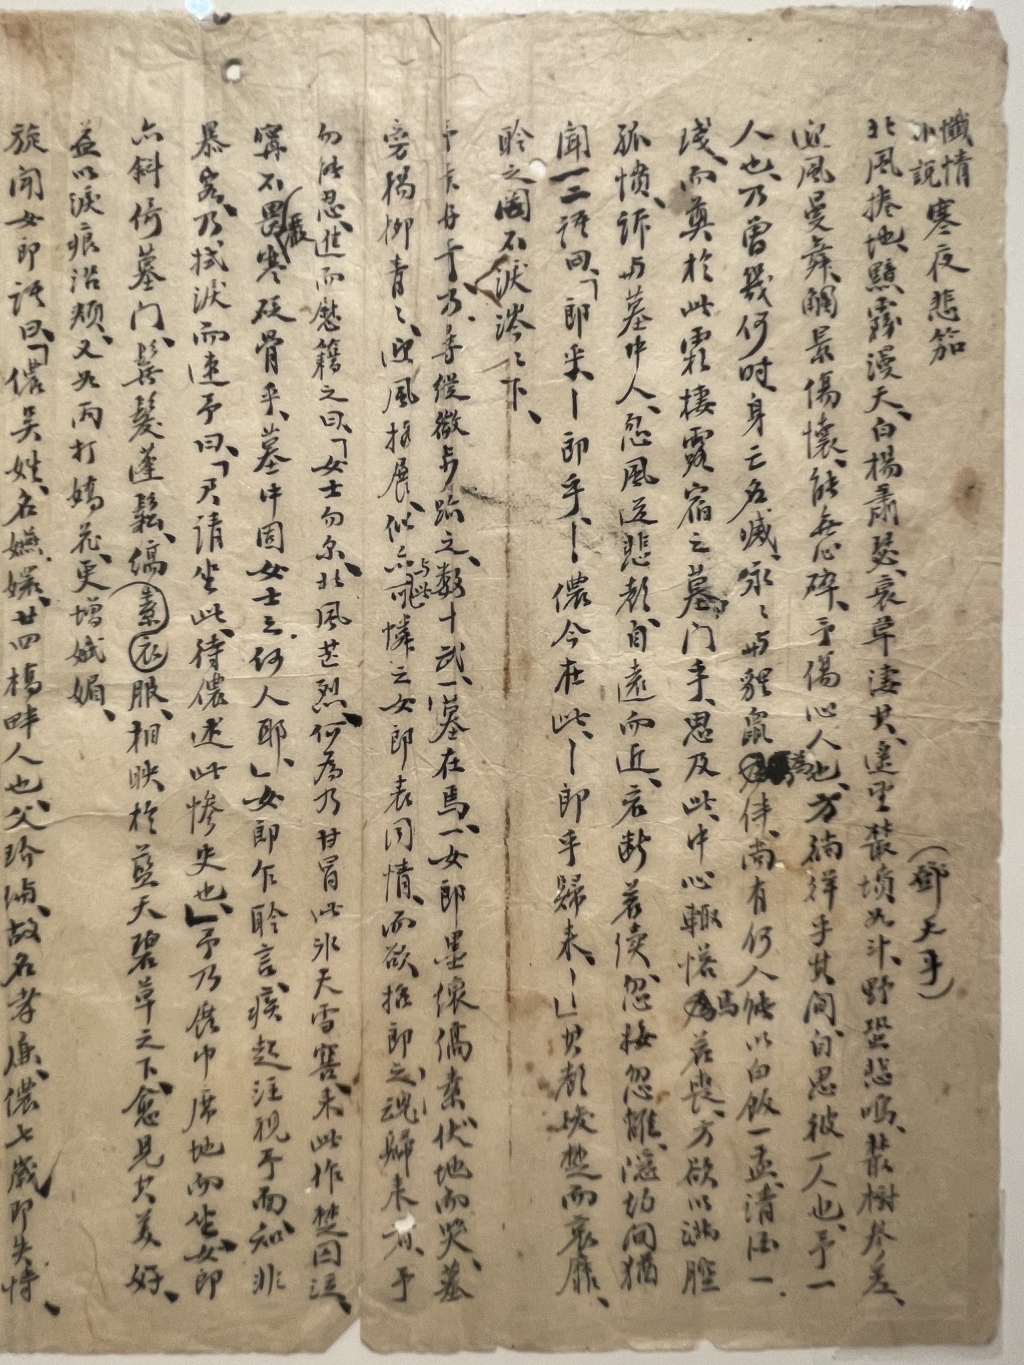 懺情小說 寒夜悲笳
（鄧天乎）
北風捲地、黯霧漫天、白楊蕭瑟、衰草淒其、遙望叢墳如斗、野蛩悲鳴、叢樹參差、
迎風曼舞、觸景傷懷、能無心碎、予傷心人也、方徜徉乎其間、自思彼一人也、予一
人也、乃曾幾何時、身亡名滅、永〻與貍鼠為伴、尚有何人能以白飯一盂、清酒一
殘、而奠於此霜棲露宿之墓門乎、思及此、中心輒惝焉若喪、方欲以滿腔
孤憤、訴与墓中人、忽風送悲聲、自遠而近、若斷若續、忽接忽離、隱約間猶
聞一二語曰、「郎乎、—郎乎、—儂今在此、—郎乎歸來、—」其聲悽楚而哀靡、
聆之闇不淚涔〻下、
予乃疾縱微步跡之、數十武、一墓在焉、一女郎墨懷縞素、伏地而哭、墓
旁楊柳青〻、迎風招展、似亦与此可憐之女郎表同情、而欲招郎之魂歸來者、予
勿能忍、進而慰籍之曰、「女士勿尔、北風芒烈、何為乃甘冒此氷天雪窖、來此作楚囚泣、
寧不畏嚴寒砭骨乎、墓中固女士之何人耶、」女郎乍聆言、疾起注視予面、知非
暴客、乃拭淚而速予曰、「君請坐此、待儂述此慘史也、」予乃展巾席地而坐、女郎
亦斜倚墓門、鬢髮蓬鬆、縞素衣服、相映於藍天碧草之下、愈見其美好、
益以淚痕沿頰、又如雨打嬌花、更增娬媚、
旋聞女郎語曰、「儂吳姓、名嬿嬿、廿四橋畔人也、父珍俑、故名孝廉、儂七歲即失恃、